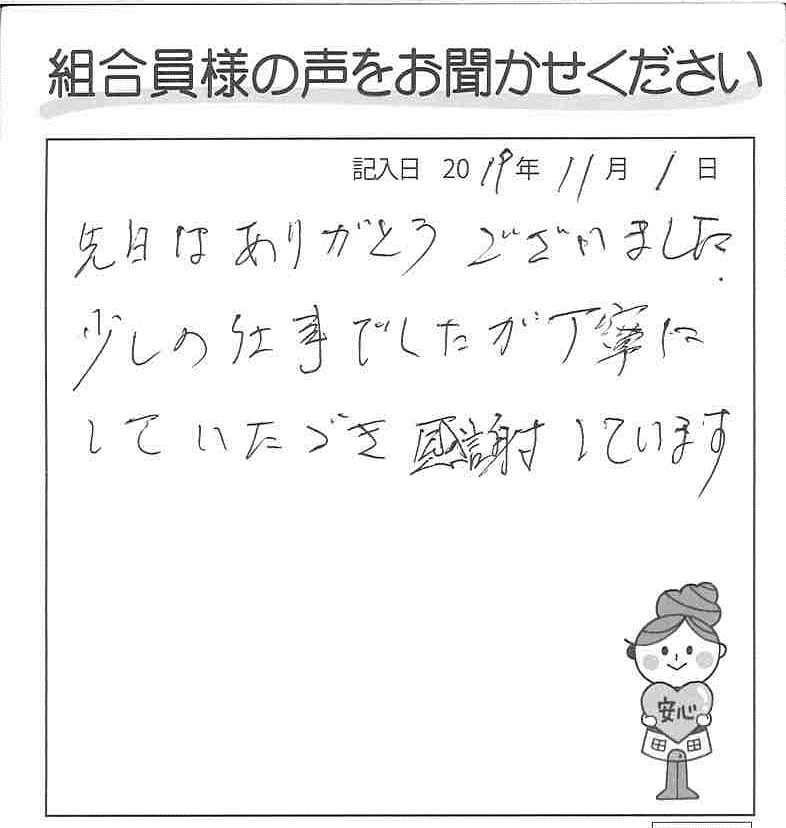 組合員様の声をお聞かせください
記入日 2019年 11月 1日
先日はありがとうございました.
少しの仕事でしたが丁寧に
していただき感謝しています
安心